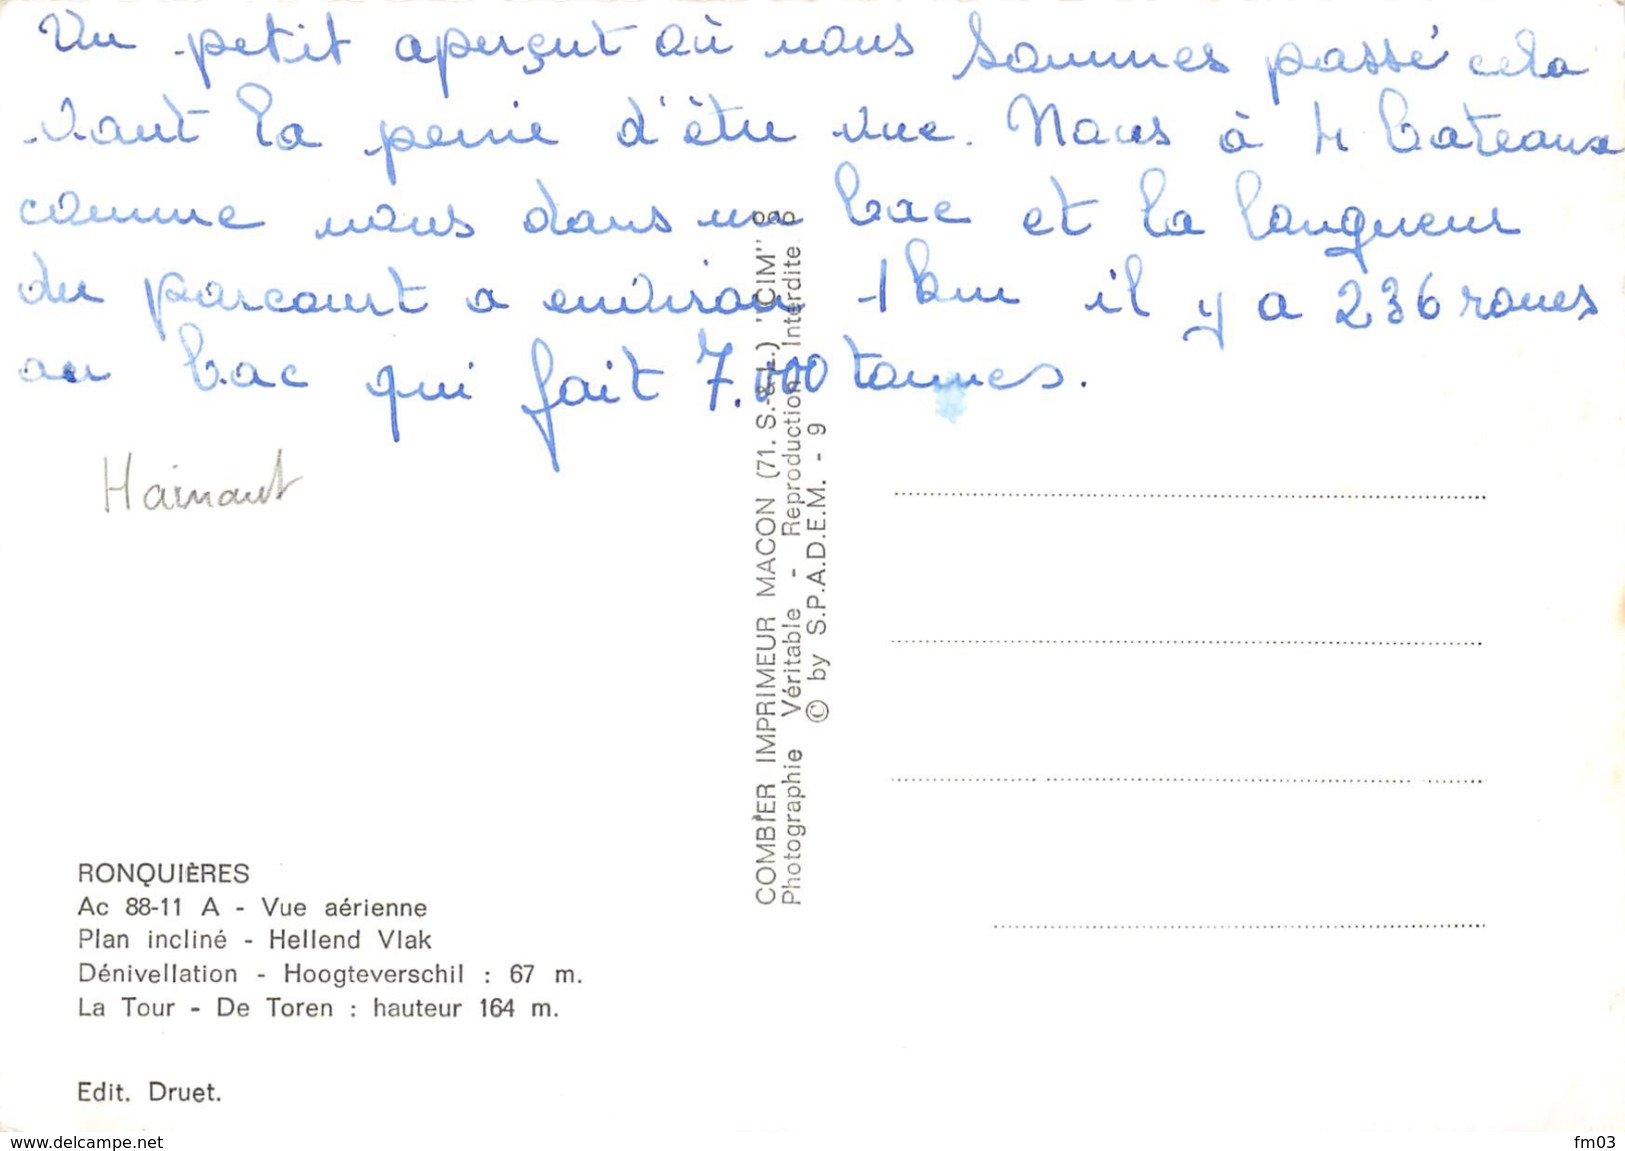 Un petit aperçut où nous sommes passé cela
vaut la peine d'être vue. Nous à 4 bateaux
comme nous dans un bac et la longueur
du parcourt a environ 1 km il y a 236 roues
au bac qui fait 7.000 tonnes.
Hainaut
COMBIER IMPRIMEUR MACON (71. S.-&-L.) "CIM"
Photographie Véritable - Reproduction Interdite
© by S.P.A.D.E.M. - 9
RONQUIÈRES
Ac 88-11 A - Vue aérienne
Plan incliné - Hellend Vlak
Dénivellation - Hoogteverschil : 67 m.
La Tour - De Toren : hauteur 164 m.
Edit. Druet.
www.delcampe.net
fm03